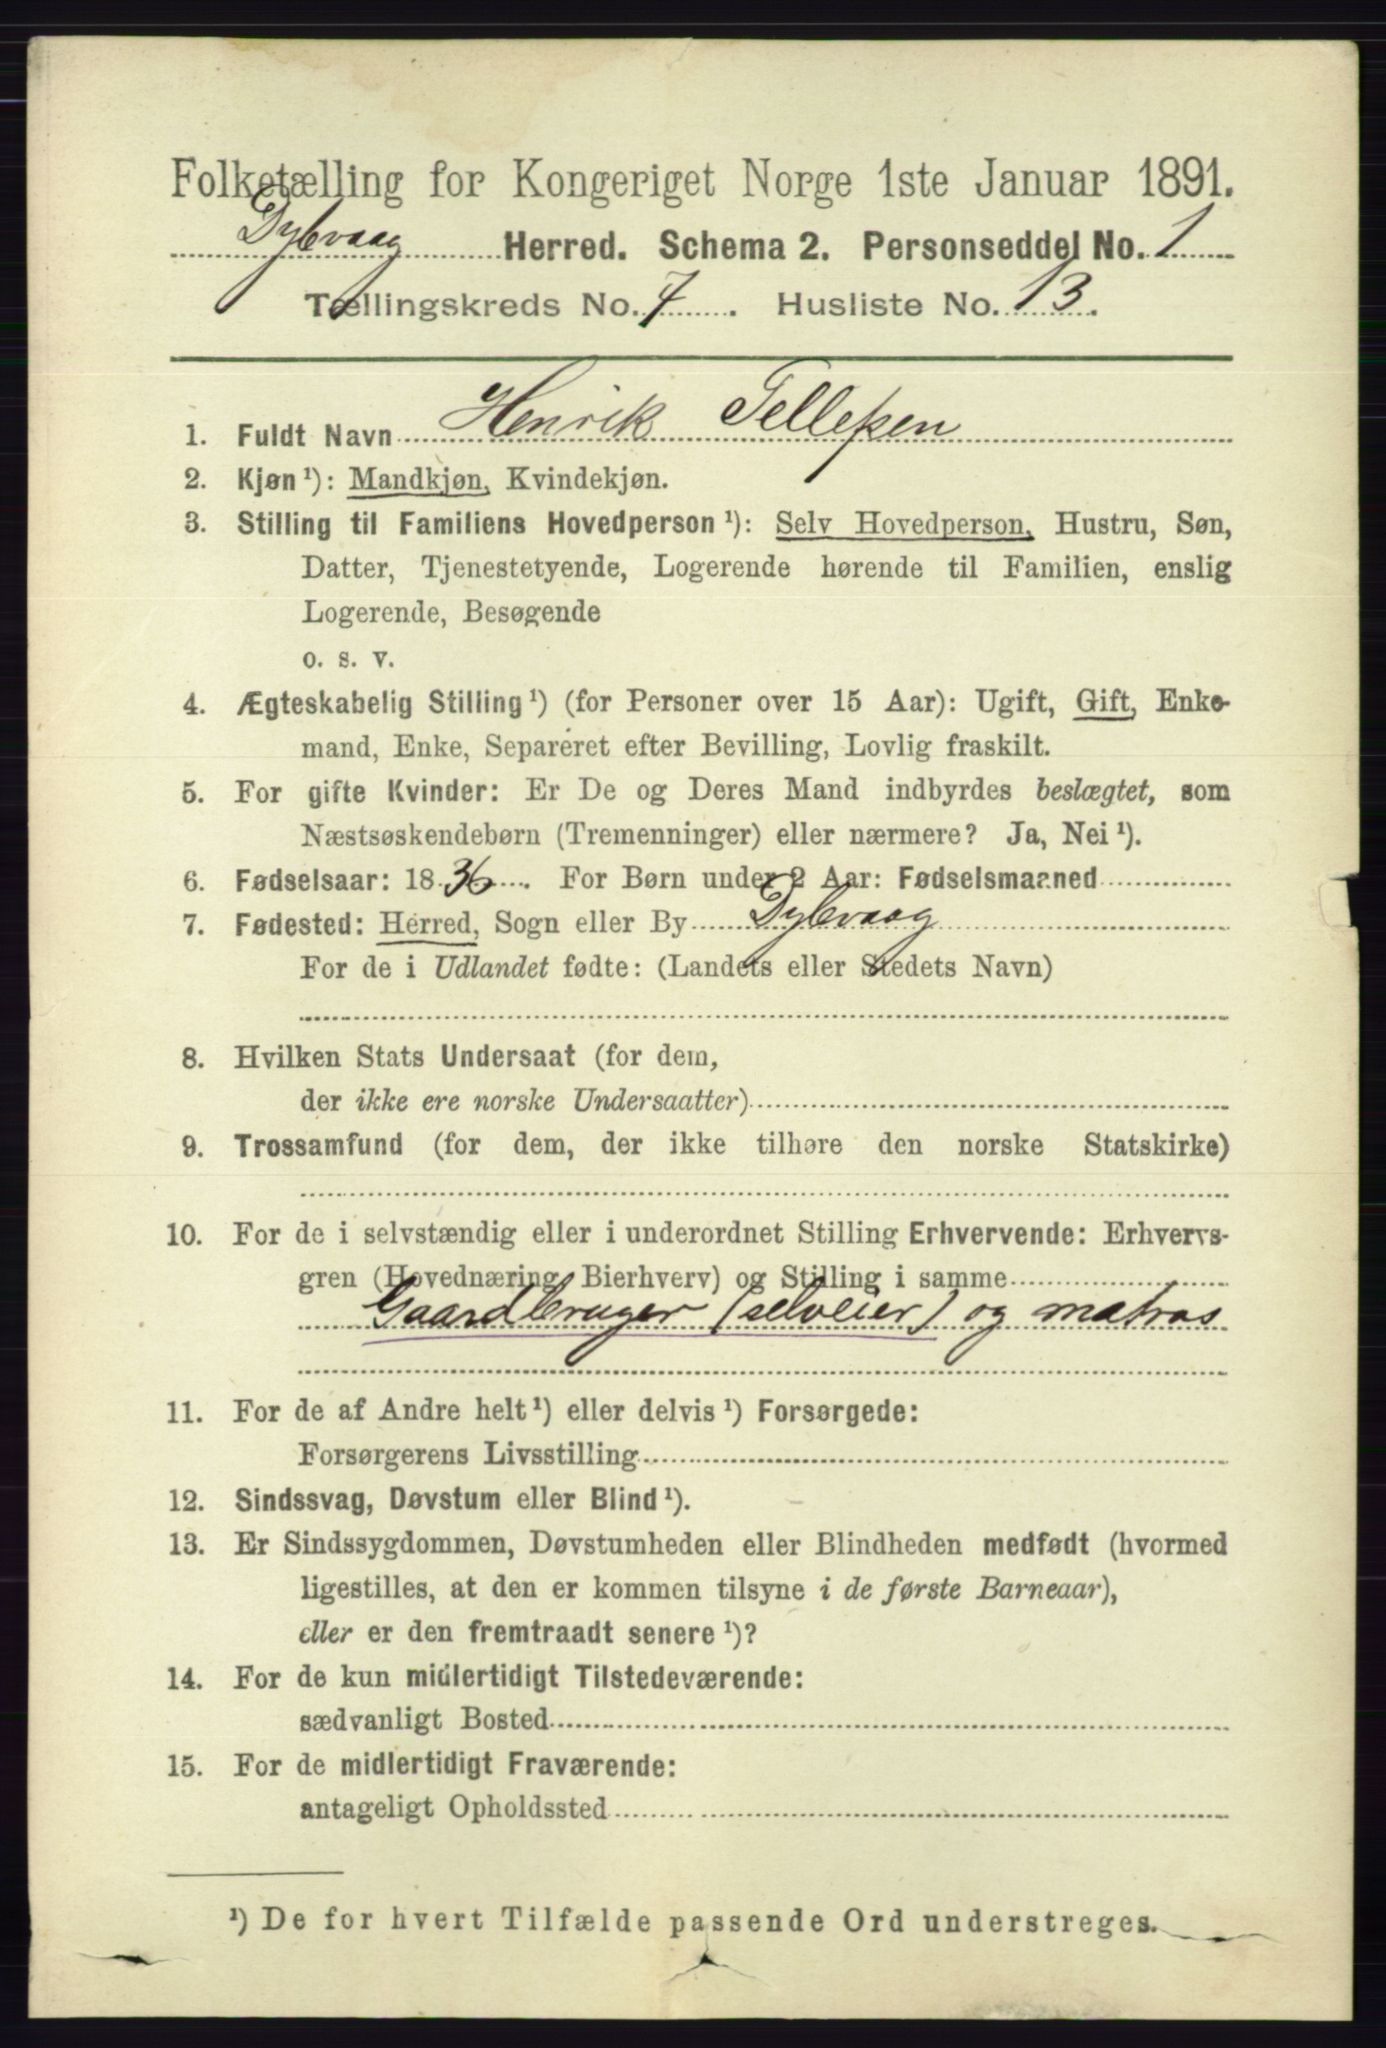 Folketælling for Kongeriget Norge 1ste Januar 1891.
Dybvaag Herred. Schema 2. Personseddel No. 1
Tællingskreds No. 7. Husliste No. 13.
1. Fuldt Navn Henrik Tellefsen
2. Kjøn ¹): Mandkjøn, Kvindekjøn.
3. Stilling til Familiens Hovedperson ¹): Selv Hovedperson, Hustru, Søn,
Datter, Tjenestetyende, Logerende hørende til Familien, enslig
Logerende, Besøgende
o. s. v.
4. Ægteskabelig Stilling ¹) (for Personer over 15 Aar): Ugift, Gift, Enke-
mand, Enke, Separeret efter Bevilling, Lovlig fraskilt.
5. For gifte Kvinder: Er De og Deres Mand indbyrdes beslægtet, som
Næstsøskendebørn (Tremenninger) eller nærmere? Ja, Nei ¹).
6. Fødselsaar: 1836. For Børn under 2 Aar: Fødselsmaaned
7. Fødested: Herred, Sogn eller By Dybvaag
For de i Udlandet fødte: (Landets eller Stedets Navn)
8. Hvilken Stats Undersaat (for dem,
der ikke ere norske Undersaatter)
9. Trossamfund (for dem, der ikke tilhøre den norske Statskirke)
10. For de i selvstændig eller i underordnet Stilling Erhvervende: Erhvervs-
gren (Hovednæring, Bierhverv) og Stilling i samme
Gaardbruger (selveier) og matros
11. For de af Andre helt ¹) eller delvis ¹) Forsørgede:
Forsørgerens Livsstilling
12. Sindssvag, Døvstum eller Blind ¹).
13. Er Sindssygdommen, Døvstumheden eller Blindheden medfødt (hvormed
ligestilles, at den er kommen tilsyne i de første Barneaar),
eller er den fremtraadt senere ¹)?
14. For de kun midlertidigt Tilstedeværende:
sædvanligt Bosted
15. For de midlertidigt Fraværende:
antageligt Opholdssted
¹) De for hvert Tilfælde passende Ord understreges.